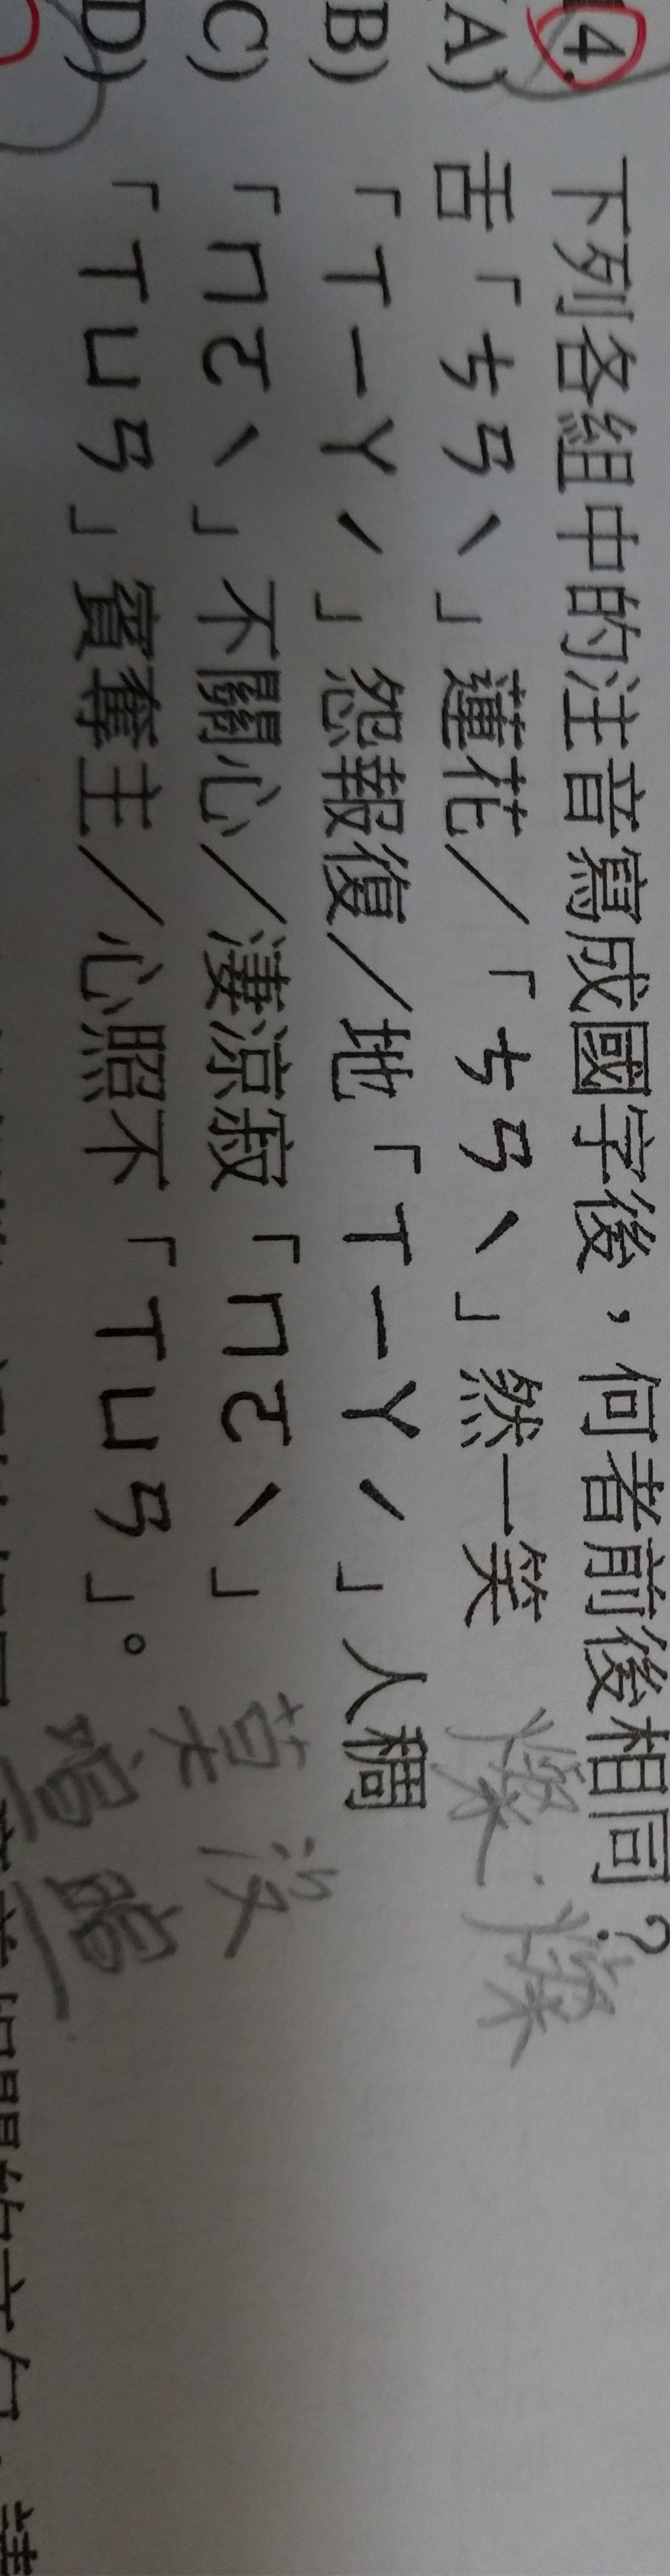 14. 下列各組中的注音寫成國字後，何者前後相同？
(A) 舌「ㄘㄢˋ」蓮花／「ㄘㄢˋ」然一笑 燦 燦
(B)「ㄒㄧㄚˊ」怨報復／地「ㄒㄧㄚˊ」人稠
(C)「ㄇㄛˋ」不關心／淒涼寂「ㄇㄛˋ」 莫 沒
(D)「ㄒㄩㄢ」賓奪主／心照不「ㄒㄩㄢ」。 喧